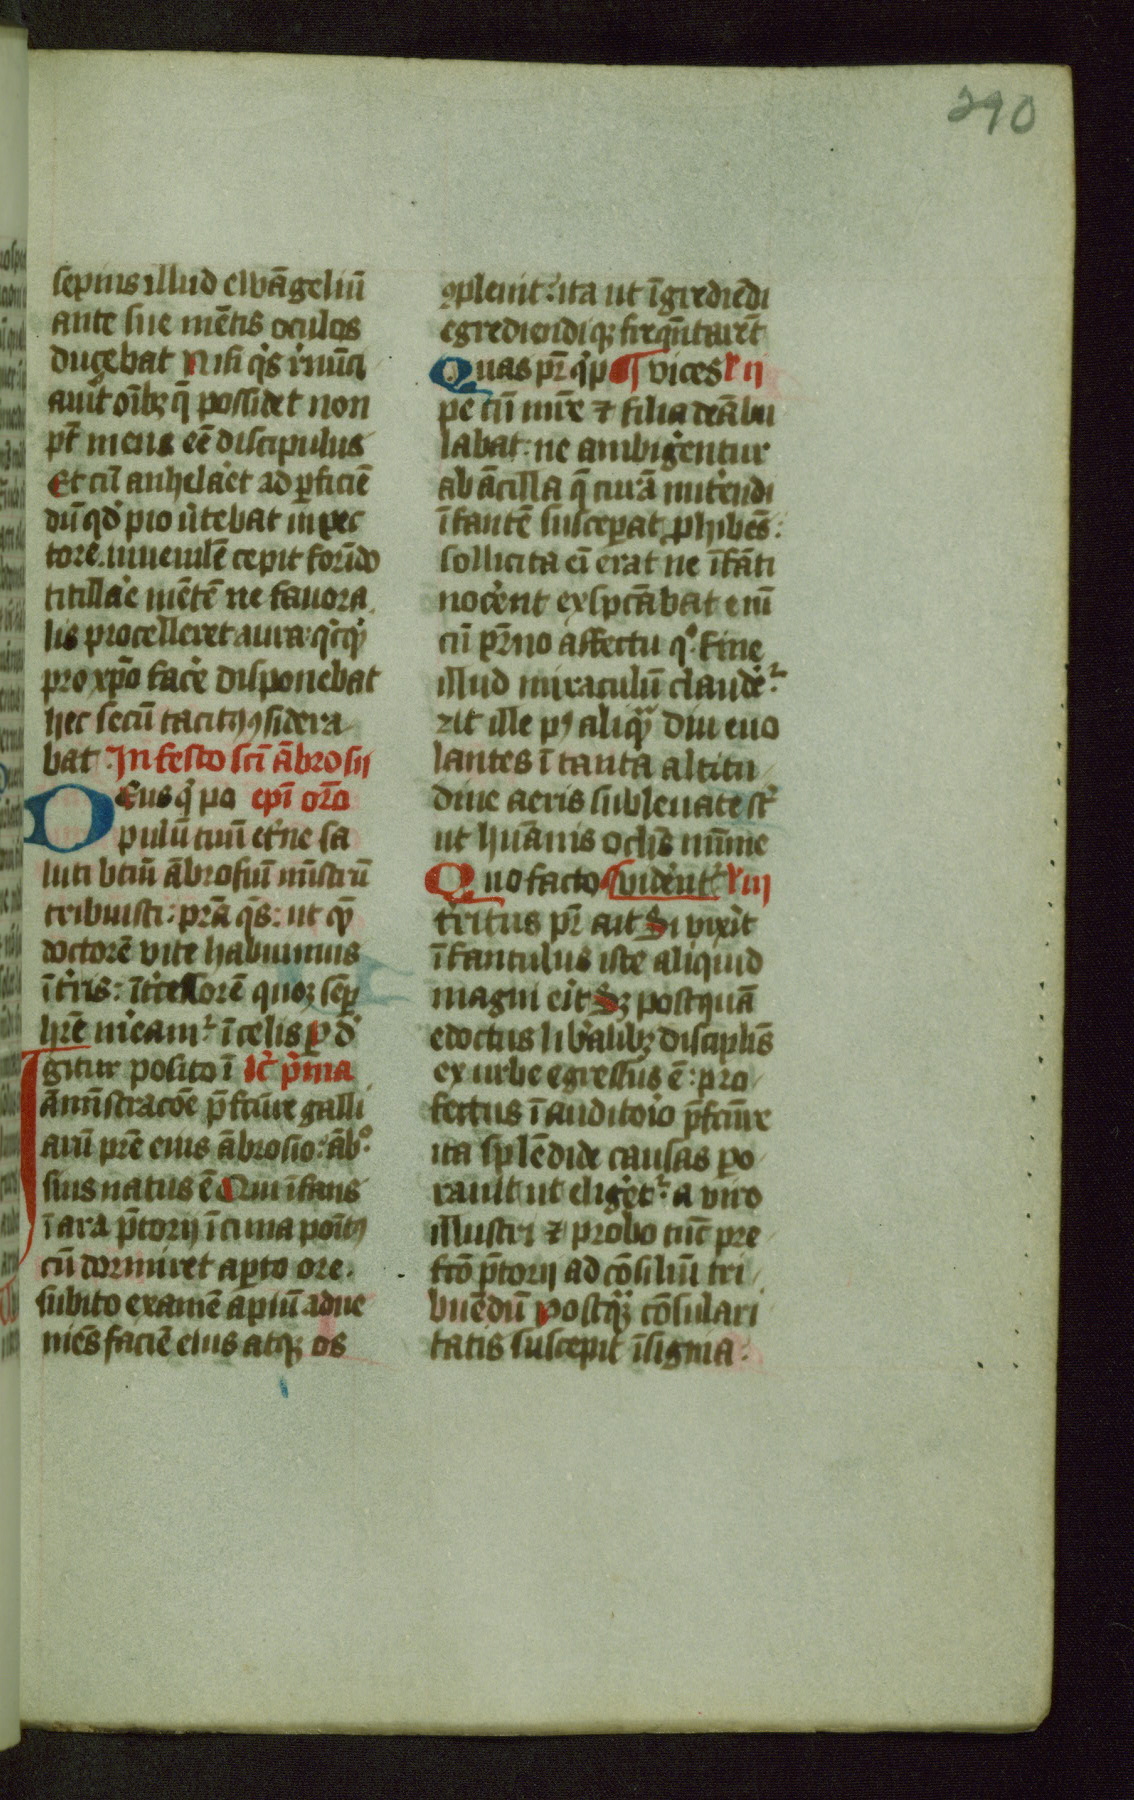 290
sepius illud ewāgeliū
ante sue mētis oculos
ducebat Nisi q̇s r̓nūci
auīt oīb⁊ q̄ possidet non
pt̄ meus eē discipulus
Et cū anhelaēt ad p̱ficiē
dū qd̓ pio ūtebat in pec
tore. iuuenilē cepit forīdo
titillae mētē ne fauora
lis procelleret aura: qͥcqͥ
pro xp̄o face̓ disponebat
hec secū tacitꝯsidera
bat In festo sc̄i ābrosii
Deus qͥ po ep̄i or̄o
pulū tuū et̓ne sa
luti btīū ābrosiū mīstrū
tribuisti: pr̄a q̄s: ut qͫ
doctorē vite habuimus
īt̓ris: īt̓cessorē quoꝫ semp̱
hr̄e me̓amͬ ī celis p̱ d̓
Igitur posito ī lc̄ p̓ma
āmīstracōe p̄fc̄ure galli
aꝝ pr̄e eius ābrosio: āb̊
sius natus ē Qui īfans
ī ara p̄torij ī cuna poītꝰ
cū dormiret aꝑto ore.
subito examē apiū adue
niēs faciē eius atqꝫ os
ꝯpleuit: ita ut īgrediēdi
egrediendiqꝫ freqn̄tarēt
Quas pr̄ q̓ p ¶ vices l'ii
pe cū mr̄e ⁊ filia deābu
labat: ne ambige̓ntur
ab ācilla q̄ curā nutrie̓ndi
īfantē susceꝑat ꝓhibēs:
sollicita ei̓ erat ne īfāti
noce̓nt exspc̄abat enī
cū pr̄no affectu qͦ fine
illud miraculū claude̓ͬ
⁊it ille pꝰ aliqͫ diu euo
lantes ī tanta altitu
dine aeris subleuate stͭ
ut hūanis oclis̄ mīme
Quo facto ¶ vide̓nt̓ͬ l'iii
t̓ritus pr̄ ait Si vixīt
īfantulus iste aliquid
magni eīt Sꝫ postquā
edoctus lib̓alib⁊ disciplīs
ex urbe egressus ē: pro
fectus ī auditoīo p̄fc̄ure
ita splēdide causas ꝑo
rauit ut elige̓tͬ a viro
illustri ⁊ probo tūc pre
fc̄o p̄torij ad cōsiliū tri
buēdū Postqͫ cōsulari
tatis suscepit īsignia.